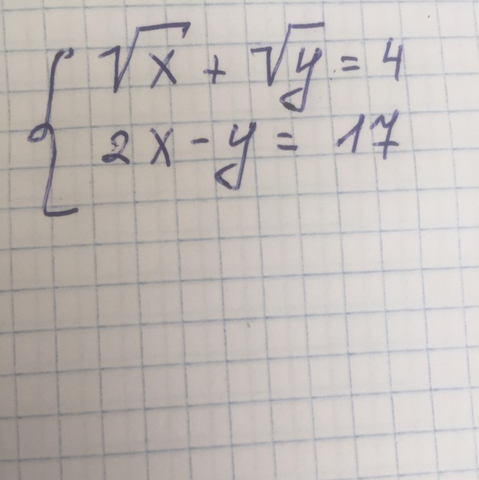 √x + √y = 4
2x - y = 17